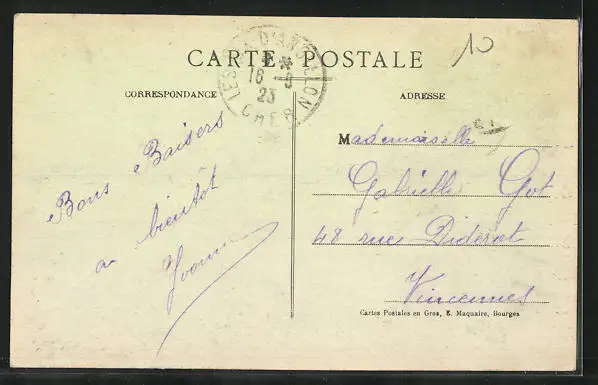 CARTE POSTALE
10
LES AIX D'ANGILLON
16 -9
23
CHER
CORRESPONDANCE
ADRESSE
Bons Baisers
a bientôt
Yvonne
Mademoiselle
Gabrielle Got
48 rue Diderot
Vincennes
Cartes Postales en Gros, E. Maquaire, Bourges